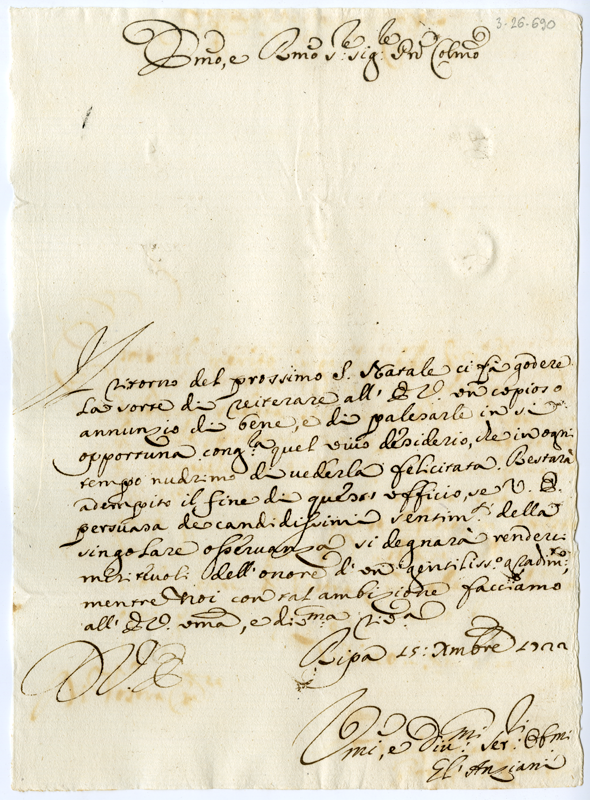 3-26-690
Emo, e Rmo Sre: sigre: Prōn Colmo
Il ritorno del prossimo S. Natale ci fà godere
la sorte di reiterare all' E. V. un copioso
annunzio di bene, e di palesarle in sì
opportuna congra quel vivo desiderio, che in ogni
tempo nudrimo di vederla felicitata. Restarà
adempito il fine di questo ufficio, se V. E.
persuasa de candidissimi sentimti della
singolare osservanza si degnarà renderci
meritevoli dell'onore d'un gentilisso
mentre Noi con tal ambizione facciamo
all' E. V. uma, e dima riva
Ripa 15: Xmbre 1722
D. V. E.
Umi, e Divmi: Seri: Obmi:
Gl' Anziani